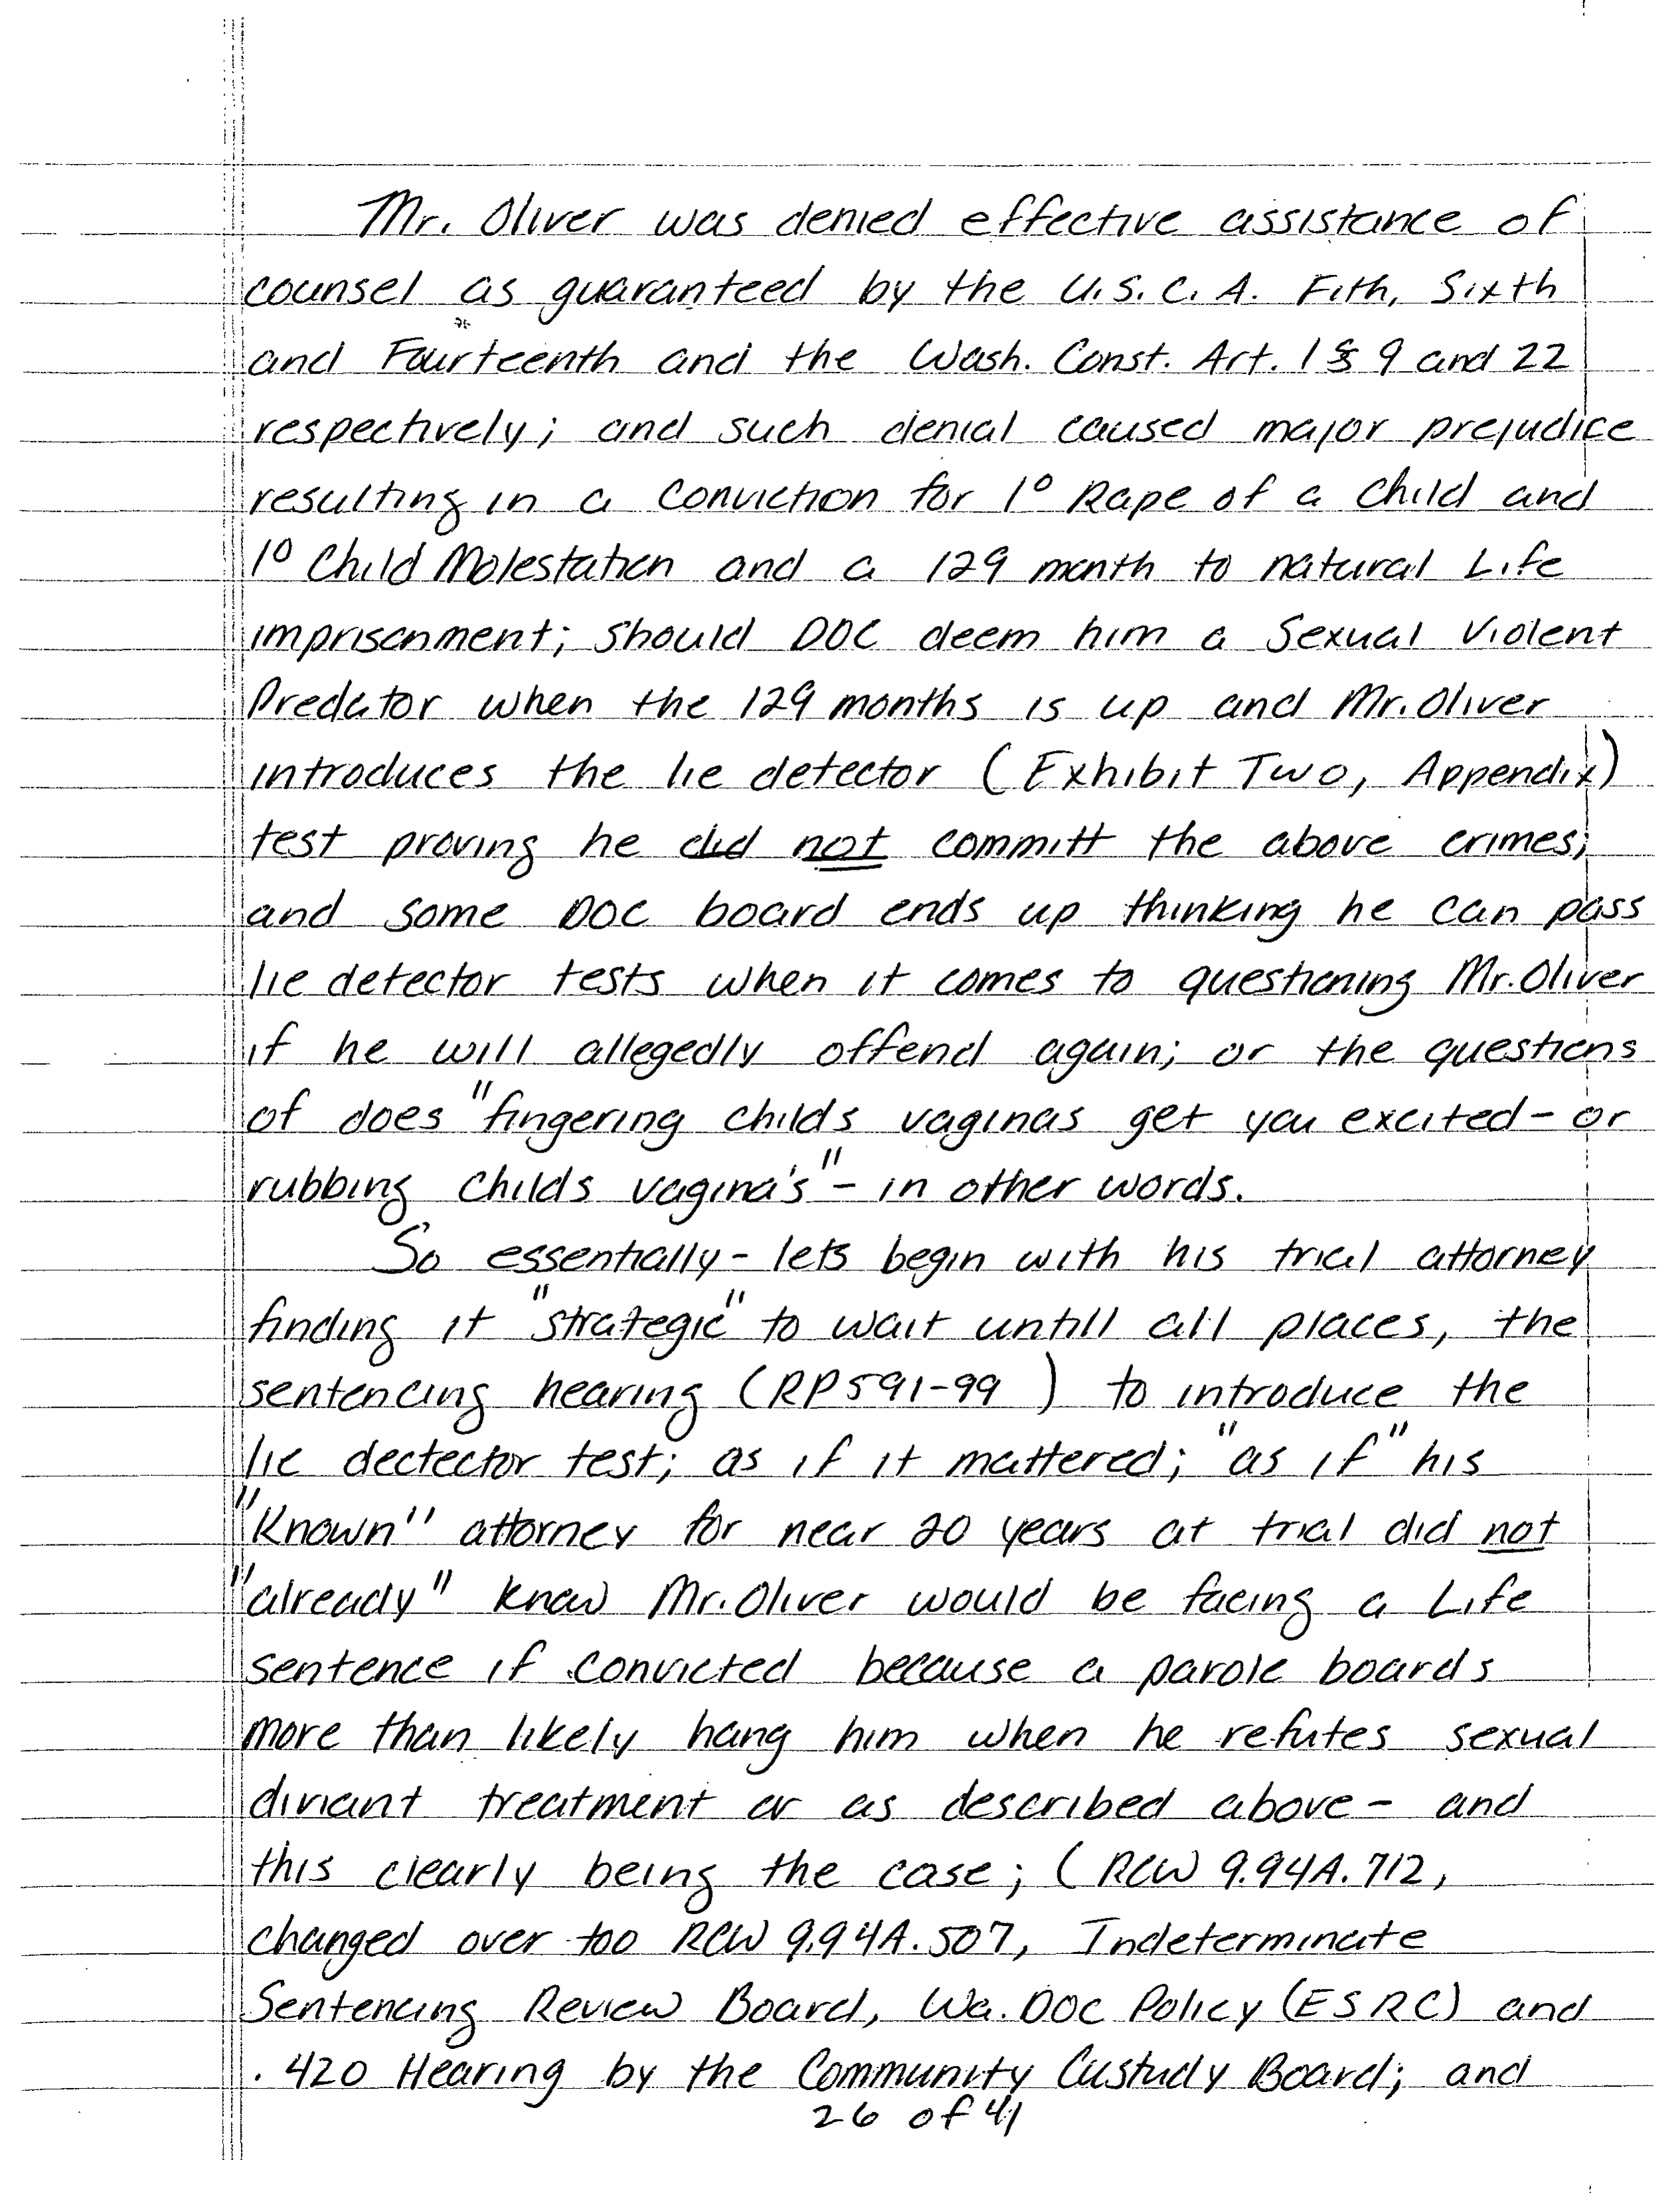 Mr. Oliver was denied effective assistance of
counsel as guaranteed by the U.S.C.A. Fith, Sixth
and Fourteenth and the Wash. Const. Art. 1 § 9 and 22
respectively; and such denial caused major prejudice
resulting in a conviction for 1° Rape of a child and
1° Child Molestation and a 129 month to natural Life
imprisonment; should DOC deem him a Sexual Violent
Predator when the 129 months is up and Mr. Oliver
introduces the lie detector (Exhibit Two, Appendix)
test proving he did not committ the above crimes;
and some DOC board ends up thinking he can pass
lie detector tests when it comes to questioning Mr. Oliver
if he will allegedly offend again; or the questions
of does "fingering childs vaginas get you excited - or
rubbing childs vagina's" - in other words.
So essentially - lets begin with his trial attorney
finding it "strategic" to wait untill all places, the
sentencing hearing (RP 591-99 ) to introduce the
lie dectector test; as if it mattered; "as if" his
"Known" attorney for near 20 years at trial did not
"already" know Mr. Oliver would be facing a Life
sentence if convicted because a parole boards
more than likely hang him when he refutes sexual
diviant treatment or as described above - and
this clearly being the case; (RCW 9.94A.712,
changed over too RCW 9.94A.507, Indeterminate
Sentencing Review Board, Wa. DOC Policy (ESRC) and
.420 Hearing by the Community Custudy Board; and
26 of 41